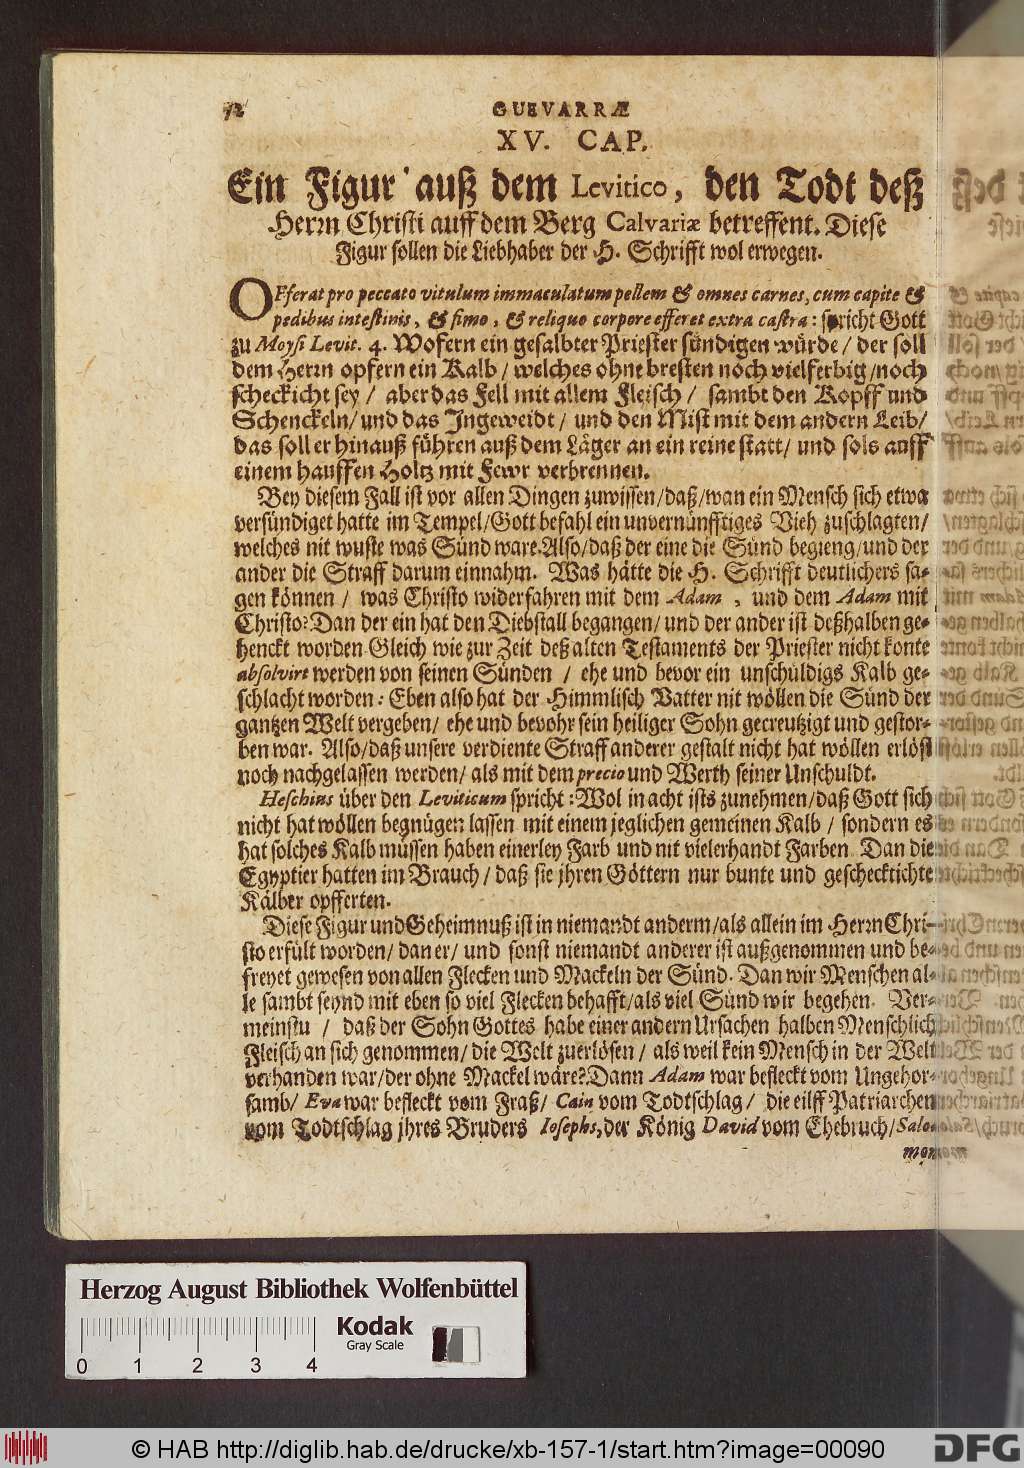 72
GUEVARRÆ
XV. CAP.
Ein Figur auß dem Levitico, den Todt deß
Herrn Christi auff dem Berg Calvariæ betreffent. Diese
Figur sollen die Liebhaber der H. Schrifft wol erwegen.
OFferat pro peccato vitulum immaculatum pellem & omnes carnes, cum capite &
pedibus intestinis, & fimo, & reliquo corpore efferet extra castra: spricht Gott
zu Moysi Levit. 4. Wofern ein gesalbter Priester sündigen würde / der soll
dem Herrn opfern ein Kalb / welches ohne bresten noch vielferbig / noch
scheckicht sey / aber das Fell mit allem Fleisch / sambt den Kopff und
Schenckeln / und das Ingeweidt / und den Mist mit dem andern Leib /
das soll er hinauß führen auß dem Läger an ein reine statt / und sols auff
einem hauffen Holtz mit Fewr verbrennen.
Bey diesem Fall ist vor allen Dingen zuwissen / daß / wan ein Mensch sich etwa
versündiget hatte im Tempel / Gott befahl ein unvernünfftiges Vieh zuschlagten /
welches nit wuste was Sünd ware. Also / daß der eine die Sünd begieng / und der
ander die Straff darum einnahm. Was hätte die H. Schrifft deutlichers sa-
gen können / was Christo widerfahren mit dem Adam, und dem Adam mit
Christo? Dan der ein hat den Diebstall begangen / und der ander ist deßhalben ge-
henckt worden. Gleich wie zur Zeit deß alten Testaments der Priester nicht konte
absolvirt werden von seinen Sünden / ehe und bevor ein unschuldigs Kalb ge-
schlacht worden: Eben also hat der Himmlisch Vatter nit wöllen die Sünd der
gantzen Welt vergeben / ehe und bevohr sein heiliger Sohn gecreutzigt und gestor-
ben war. Also / daß unsere verdiente Straff anderer gestalt nicht hat wöllen erlöst
noch nachgelassen werden / als mit dem precio und Werth seiner Unschuldt.
Heschius über den Leviticum spricht: Wol in acht ists zunehmen / daß Gott sich
nicht hat wöllen begnügen lassen mit einem jeglichen gemeinen Kalb / sondern es
hat solches Kalb müssen haben einerley Farb und nit vielerhandt Farben. Dan die
Egyptier hatten im Brauch / daß sie jhren Göttern nur bunte und geschecktichte
Kälber opfferten.
Diese Figur und Geheimnuß ist in niemandt anderm / als allein im Herrn Chri-
sto erfült worden / dan er / und sonst niemandt anderer ist außgenommen und be-
freyet gewesen von allen Flecken und Mackeln der Sünd. Dan wir Menschen al-
le sambt seynd mit eben so viel Flecken behafft / als viel Sünd wir begehen. Ver-
meinstu / daß der Sohn Gottes habe einer andern Ursachen halben Menschlich
Fleisch an sich genommen / die Welt zuerlösen / als weil kein Mensch in der Welt
verhanden war / der ohne Mackel wäre? Dann Adam war befleckt vom Ungehor-
samb / Eva war befleckt vom Fraß / Cain vom Todtschlag / die eilff Patriarchen
vom Todtschlag jhres Bruders Iosephs, der König David vom Ehebruch / Salo-
mon
Herzog August Bibliothek Wolfenbüttel
Kodak
Gray Scale
0 1 2 3 4
© HAB http://diglib.hab.de/drucke/xb-157-1/start.htm?image=00090
DFG